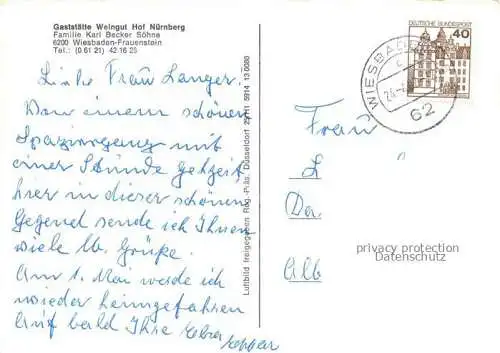 Gaststätte Weingut Hof Nürnberg
Familie Karl Becker Söhne
6200 Wiesbaden-Frauenstein
Tel.: (0 61 21) 42 16 25
Liebe Frau Langer.
Von einem schönen
Spaziergang mit
einer Stunde Gehzeit
hier in dieser schönen
Gegend sende ich Ihnen
viele lb. Grüße.
Am 1. Mai werde ich
wieder heimgefahren
Auf bald Ihre
Luftbild freigegeben Reg.-Präs. Düsseldorf
DEUTSCHE BUNDESPOST
40
WIESBADEN
c
62
Frau
L
Da
Alb
privacy protection
Datenschutz